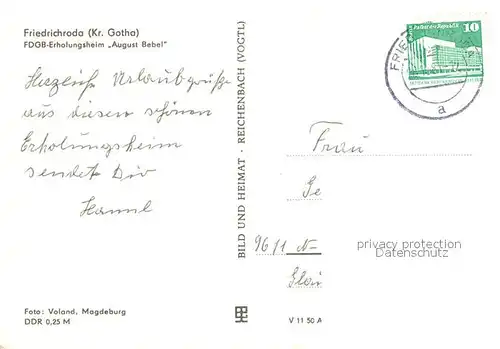 Friedrichroda (Kr. Gotha)
FDGB-Erholungsheim „August Bebel"
Herzliche Urlaubsgrüße
aus diesem schönen
Erholungsheim
sendet Dir
BILD UND HEIMAT · REICHENBACH (VOGTL)
10
FRIED
a
Frau
Ge
9611 N-
privacy protection
Datenschutz
Glau
Foto: Voland, Magdeburg
DDR 0,25 M
V 11 50 A